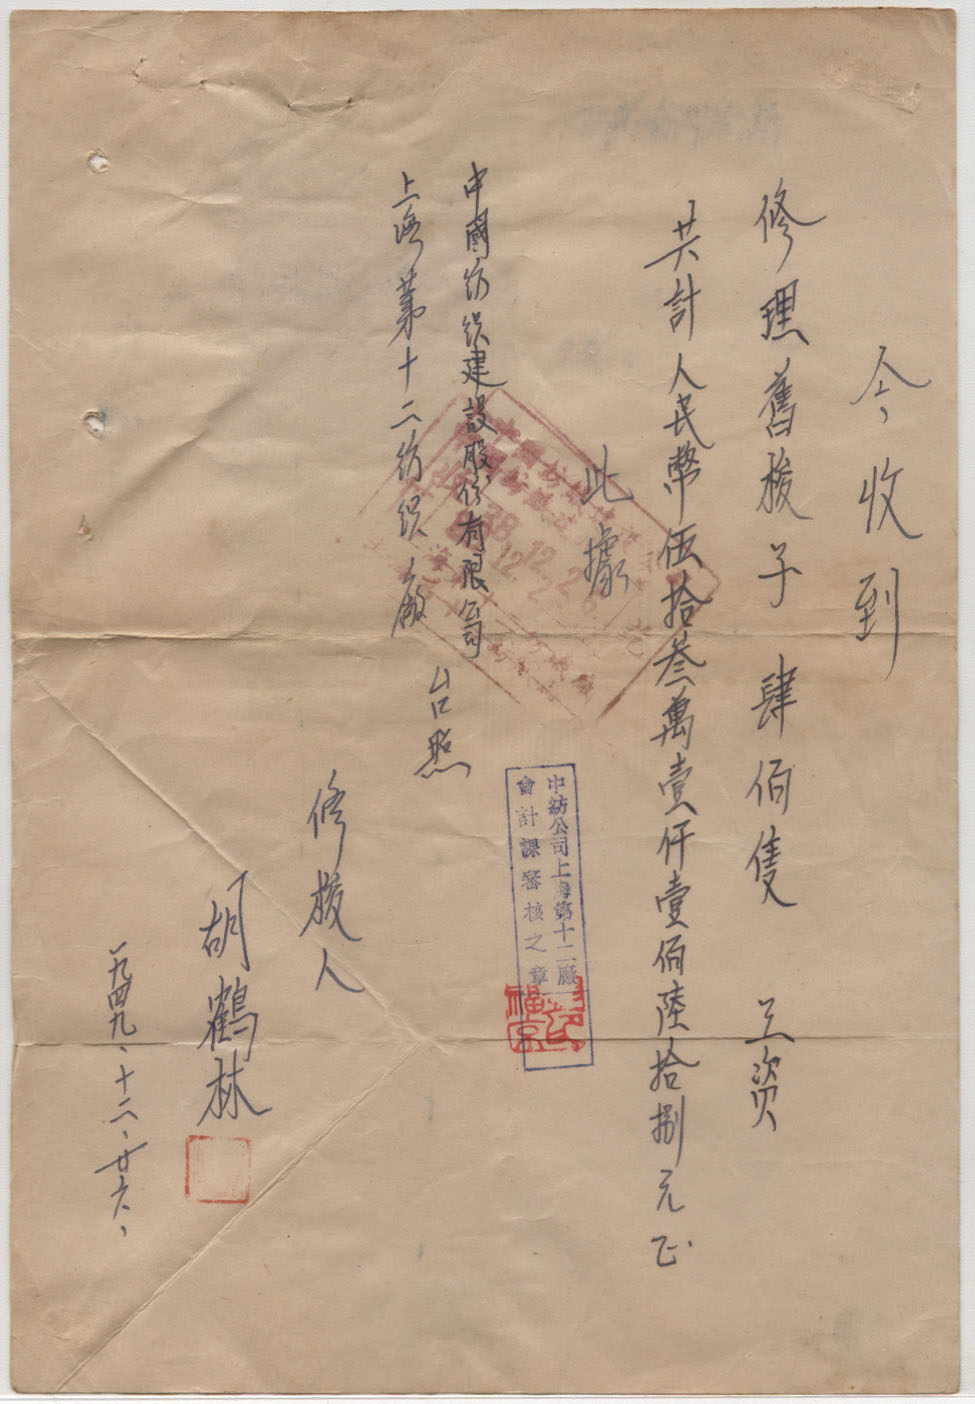 今收到
修理舊梭子肆佰隻 工資
共計人民幣伍拾叁萬壹仟壹佰陸拾捌元正
此據
中國紡织建設股份有限公司
上海第十二紡织廠
台照
修梭人
胡鶴林
一九四九、十二、廿六、
中紡公司上海第十二廠
會計課審核之章
38.12.26